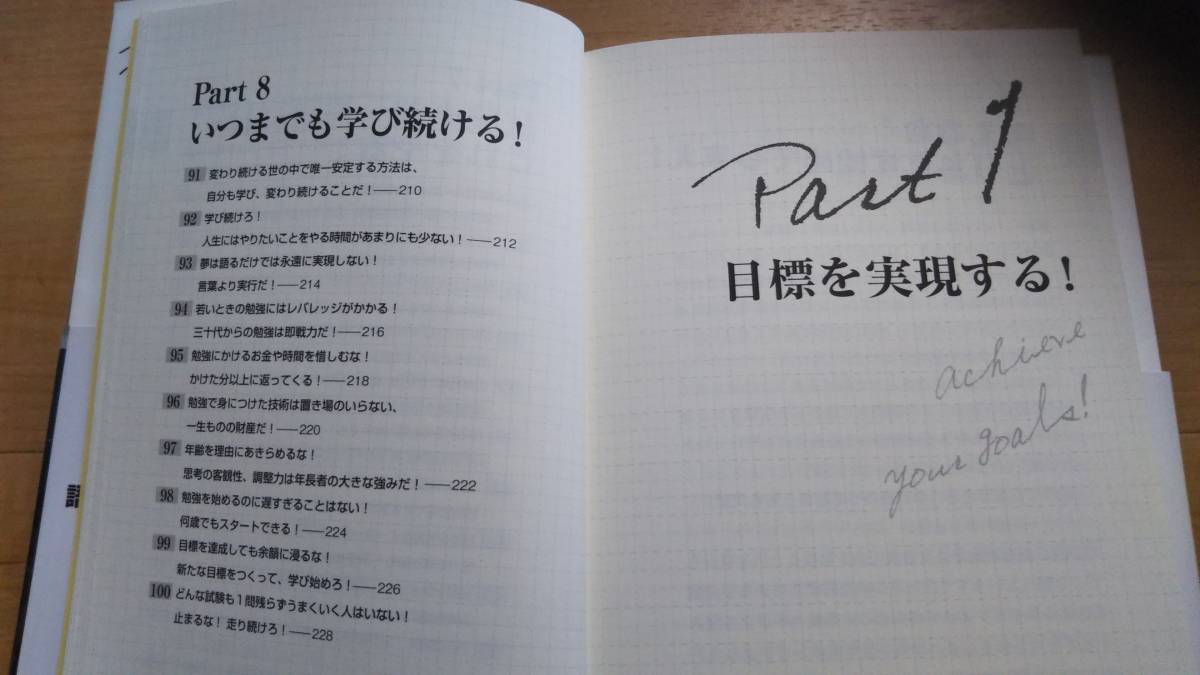 Part 8
いつまでも学び続ける!
91 変わり続ける世の中で唯一安定する方法は、
自分も学び、変わり続けることだ!——210
92 学び続けろ!
人生にはやりたいことをやる時間があまりにも少ない!——212
93 夢は語るだけでは永遠に実現しない!
言葉より実行だ!——214
94 若いときの勉強にはレバレッジがかかる!
三十代からの勉強は即戦力だ!——216
95 勉強にかけるお金や時間を惜しむな!
かけた分以上に返ってくる!——218
96 勉強で身につけた技術は置き場のいらない、
一生ものの財産だ!——220
97 年齢を理由にあきらめるな!
思考の客観性、調整力は年長者の大きな強みだ!——222
98 勉強を始めるのに遅すぎることはない!
何歳でもスタートできる!——224
99 目標を達成しても余韻に浸るな!
新たな目標をつくって、学び始めろ!——226
100 どんな試験も1問残らずうまくいく人はいない!
止まるな! 走り続けろ!——228
Part 1
目標を実現する!
achieve
your goals!